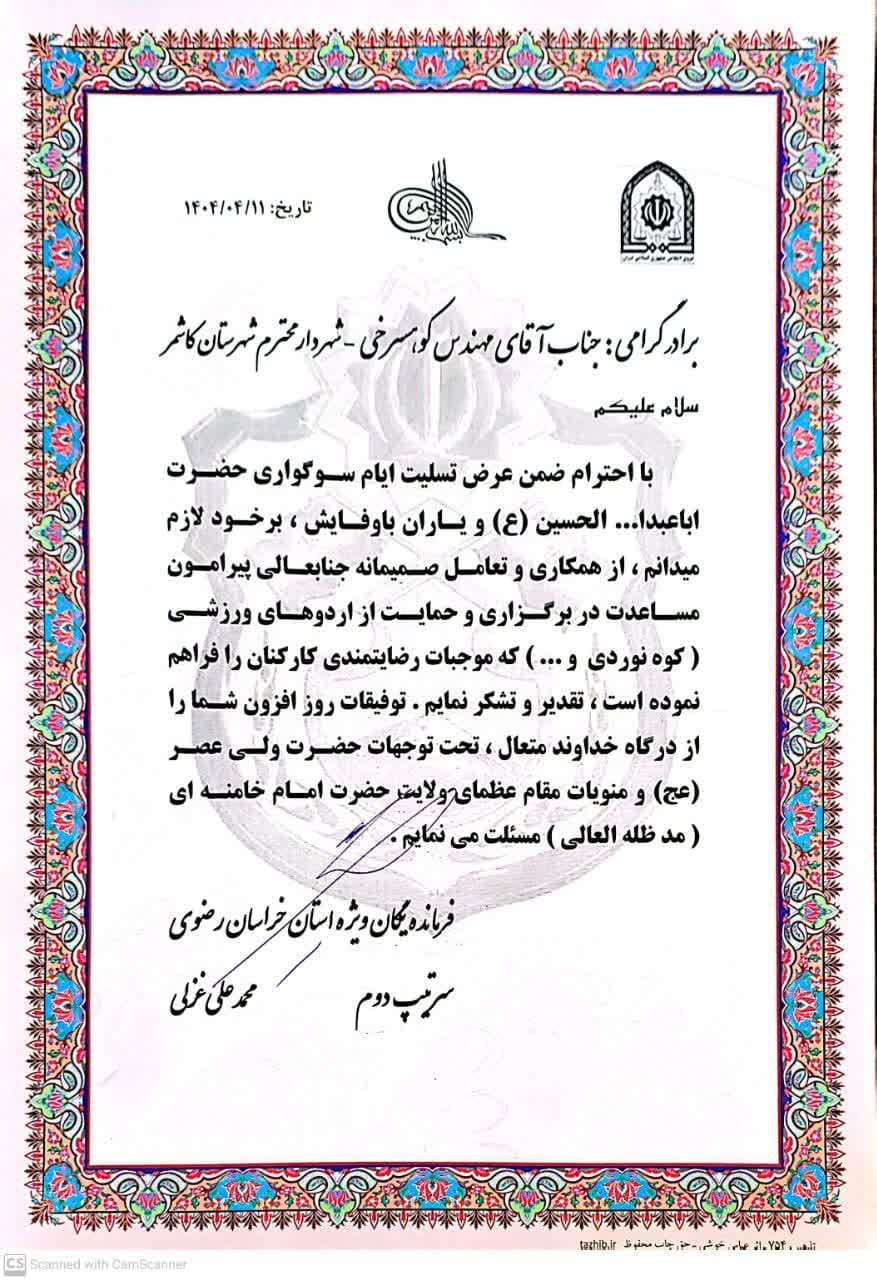 بسم الله الرحمن الرحیم
تاریخ: ۱۴۰۴/۰۴/۱۱
برادر گرامی: جناب آقای مهندس کوهسرخی - شهردار محترم شهرستان کاشمر
سلام علیکم
با احترام ضمن عرض تسلیت ایام سوگواری حضرت
اباعبدا... الحسین (ع) و یاران باوفایش ، برخود لازم
میدانم ، از همکاری و تعامل صمیمانه جنابعالی پیرامون
مساعدت در برگزاری و حمایت از اردوهای ورزشی
( کوه نوردی و ... ) که موجبات رضایتمندی کارکنان را فراهم
نموده است ، تقدیر و تشکر نمایم . توفیقات روز افزون شما را
از درگاه خداوند متعال ، تحت توجهات حضرت ولی عصر
(عج) و منویات مقام عظمای ولایت حضرت امام خامنه ای
( مد ظله العالی ) مسئلت می نمایم .
فرمانده یگان ویژه استان خراسان رضوی
سرتیپ دوم محمد علی غزلی
حق چاپ محفوظ tazhib.ir
CS Scanned with CamScanner